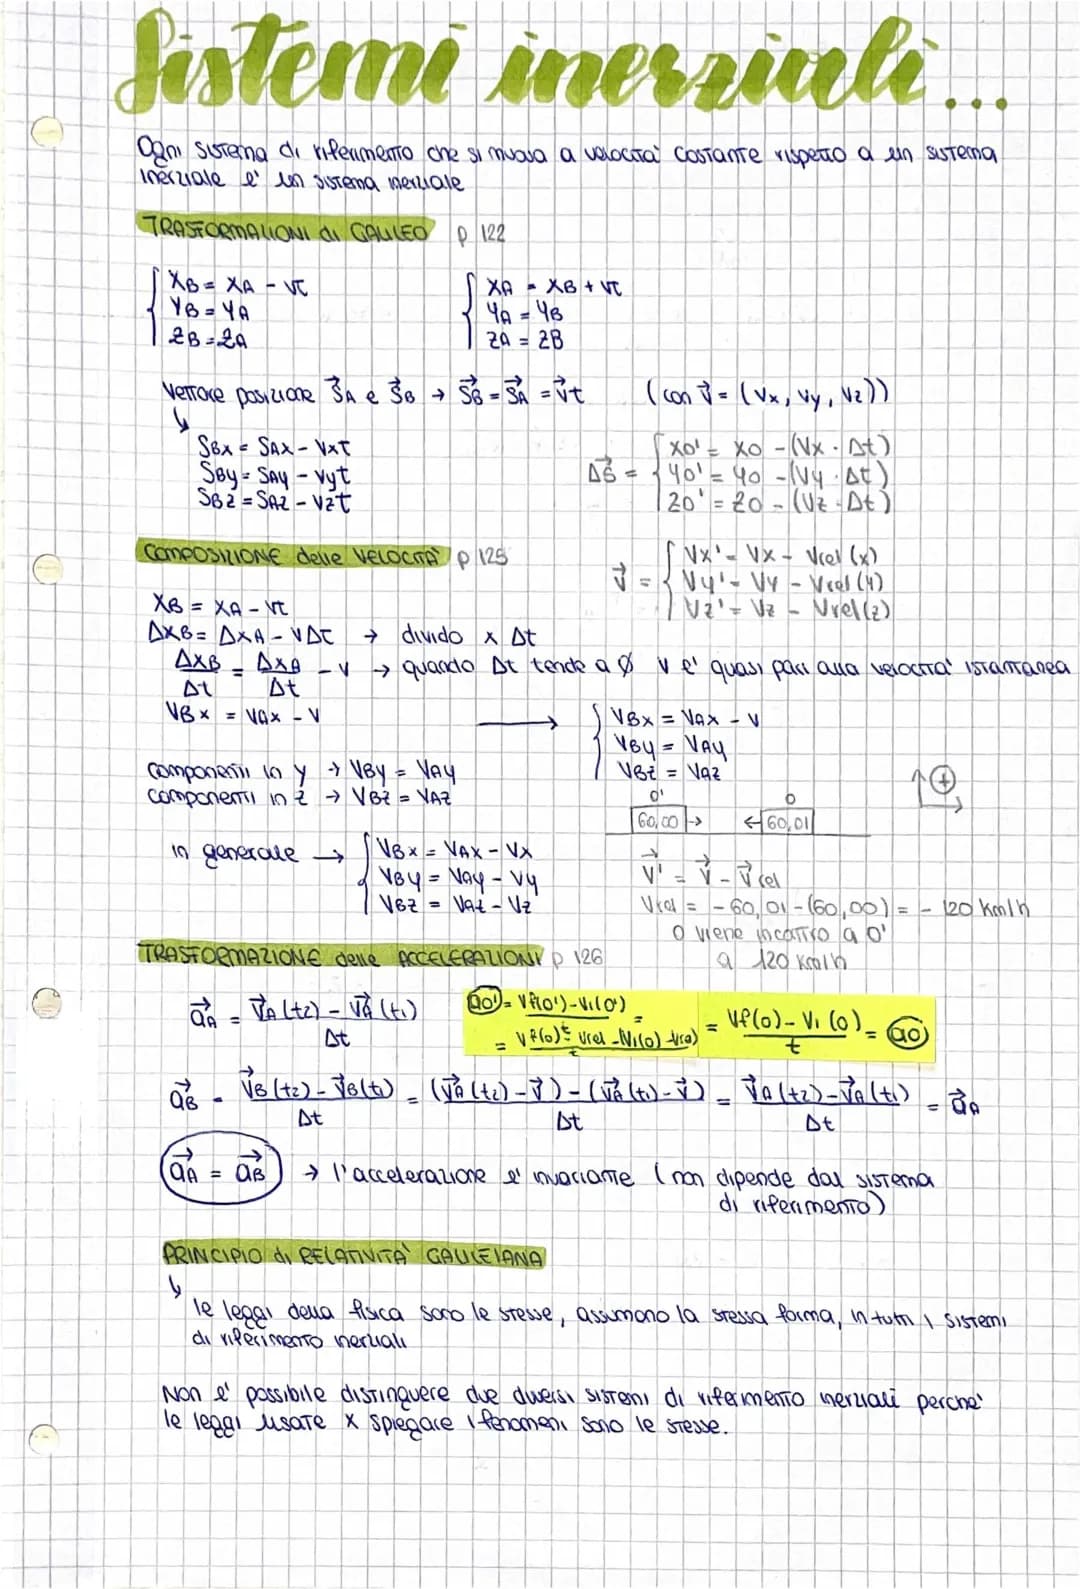 Sistemi inerziali...
Ogni sistema di riferimento che si muova a velocita' costante rispetto a un sistema
inerziale e' un sistema inerziale
TRASFORMAZIONI di GALILEO p 122
XB = XA - vt
YB = YA
ZB = ZA
XA = XB + vt
YA = YB
ZA = ZB
Vettore posizione S⃗A e S⃗B → S⃗B = S⃗A = v⃗t (con v⃗ = (Vx, Vy, Vz))
SBx = SAx - Vxt
SBy = SAy - Vyt
SBz = SAz - Vzt
ΔS⃗ =
XO' = XO - (Vx · Δt)
YO' = YO - (Vy · Δt)
ZO' = ZO - (Vz · Δt)
COMPOSIZIONE delle VELOCITA' p 125
v⃗ =
Vx' = Vx - Vrel (x)
Vy' = Vy - Vrel (y)
Vz' = Vz - Vrel (z)
XB = XA - Vt
ΔXB = ΔXA - VΔt → divido x Δt
ΔXB/Δt = ΔXA/Δt - v → quando Δt tende a Ø v e' quasi pari alla velocita' istantanea
VBx = VAx - V →
VBx = VAx - V
VBy = VAy
VBz = VAz
componenti in y → VBy = VAy
componenti in z → VBz = VAz
O' O
60,00 → ← 60,01
+
in generale →
VBx = VAx - Vx
VBy = VAy - Vy
VBz = VAz - Vz
V⃗' = V⃗ - V⃗rel
Vrel = -60,01 - (60,00) = - 120 km/h
O viene incontro a O'
a 120 km/h
TRASFORMAZIONE delle ACCELERAZIONI p 126
a⃗A = (V⃗A (t2) - V⃗A (t1))/Δt
aO' = Vf(O') - Vi(O')/t =
= Vf(O) - Vrel - (Vi(O) - Vrel)/t = Vf(O) - Vi (O)/t = aO
a⃗B = (V⃗B (t2) - V⃗B(t1))/Δt = ((V⃗A (t2) - V⃗) - (V⃗A (t1) - V⃗))/Δt = (V⃗A (t2) - V⃗A (t1))/Δt = a⃗A
a⃗A = a⃗B → l'accelerazione e' invariante (non dipende dal sistema
di riferimento)
PRINCIPIO di RELATIVITA' GALILEIANA
le leggi della fisica sono le stesse, assumono la stessa forma, in tutti i sistemi
di riferimento inerziali
Non e' possibile distinguere due diversi sistemi di riferimento inerziali perche'
le leggi usate x spiegare i fenomeni sono le stesse.